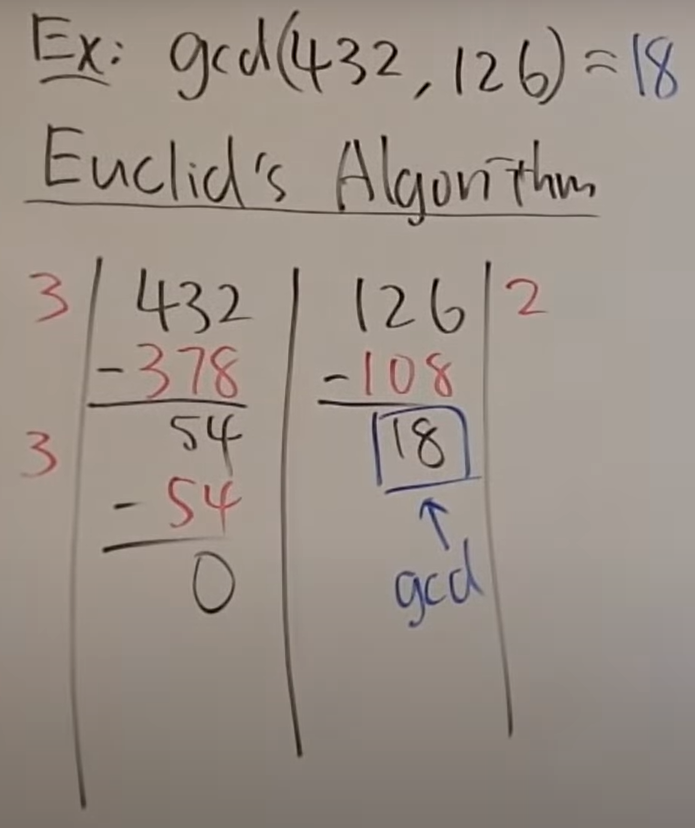 Ex: gcd(432, 126) = 18
Euclid's Algorithm
3 | 432 | 126 | 2
-378 -108
3 54 18
-54 ↑
0 gcd